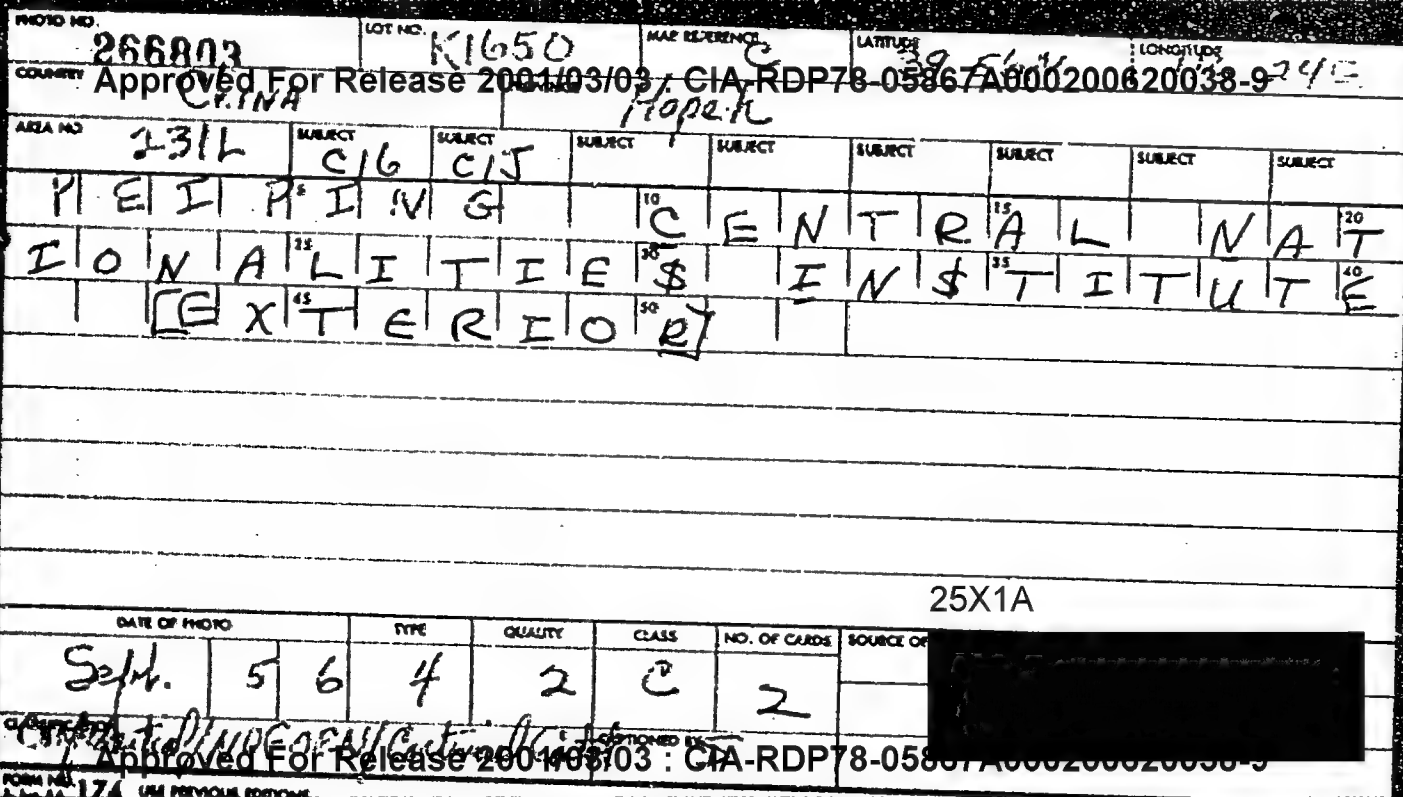 PHOTO NO. 266803 LOT NO. K1650 MAP REFERENCE C LATITUDE 39 LONGITUDE 24E
COUNTRY CHINA Hopeh
Approved For Release 2001/03/03 : CIA-RDP78-05867A000200620038-9
AREA NO 131L SUBJECT C16 SUBJECT C15 SUBJECT SUBJECT SUBJECT SUBJECT SUBJECT SUBJECT
PEIPING 10 CENTRAL 15 NAT 20
IONALITIE$ 25 30 IN$TITUTE 35 40
[EXTERIOR] 45 50
25X1A
DATE OF PHOTO TYPE QUALITY CLASS NO. OF CARDS SOURCE OF
Sept. 5 6 4 2 C 2
CLASSIFICATION NOFORN CAPTIONED BY
Approved For Release 2001/03/03 : CIA-RDP78-05867A000200620038-9
FORM NO. 174 USE PREVIOUS EDITIONS